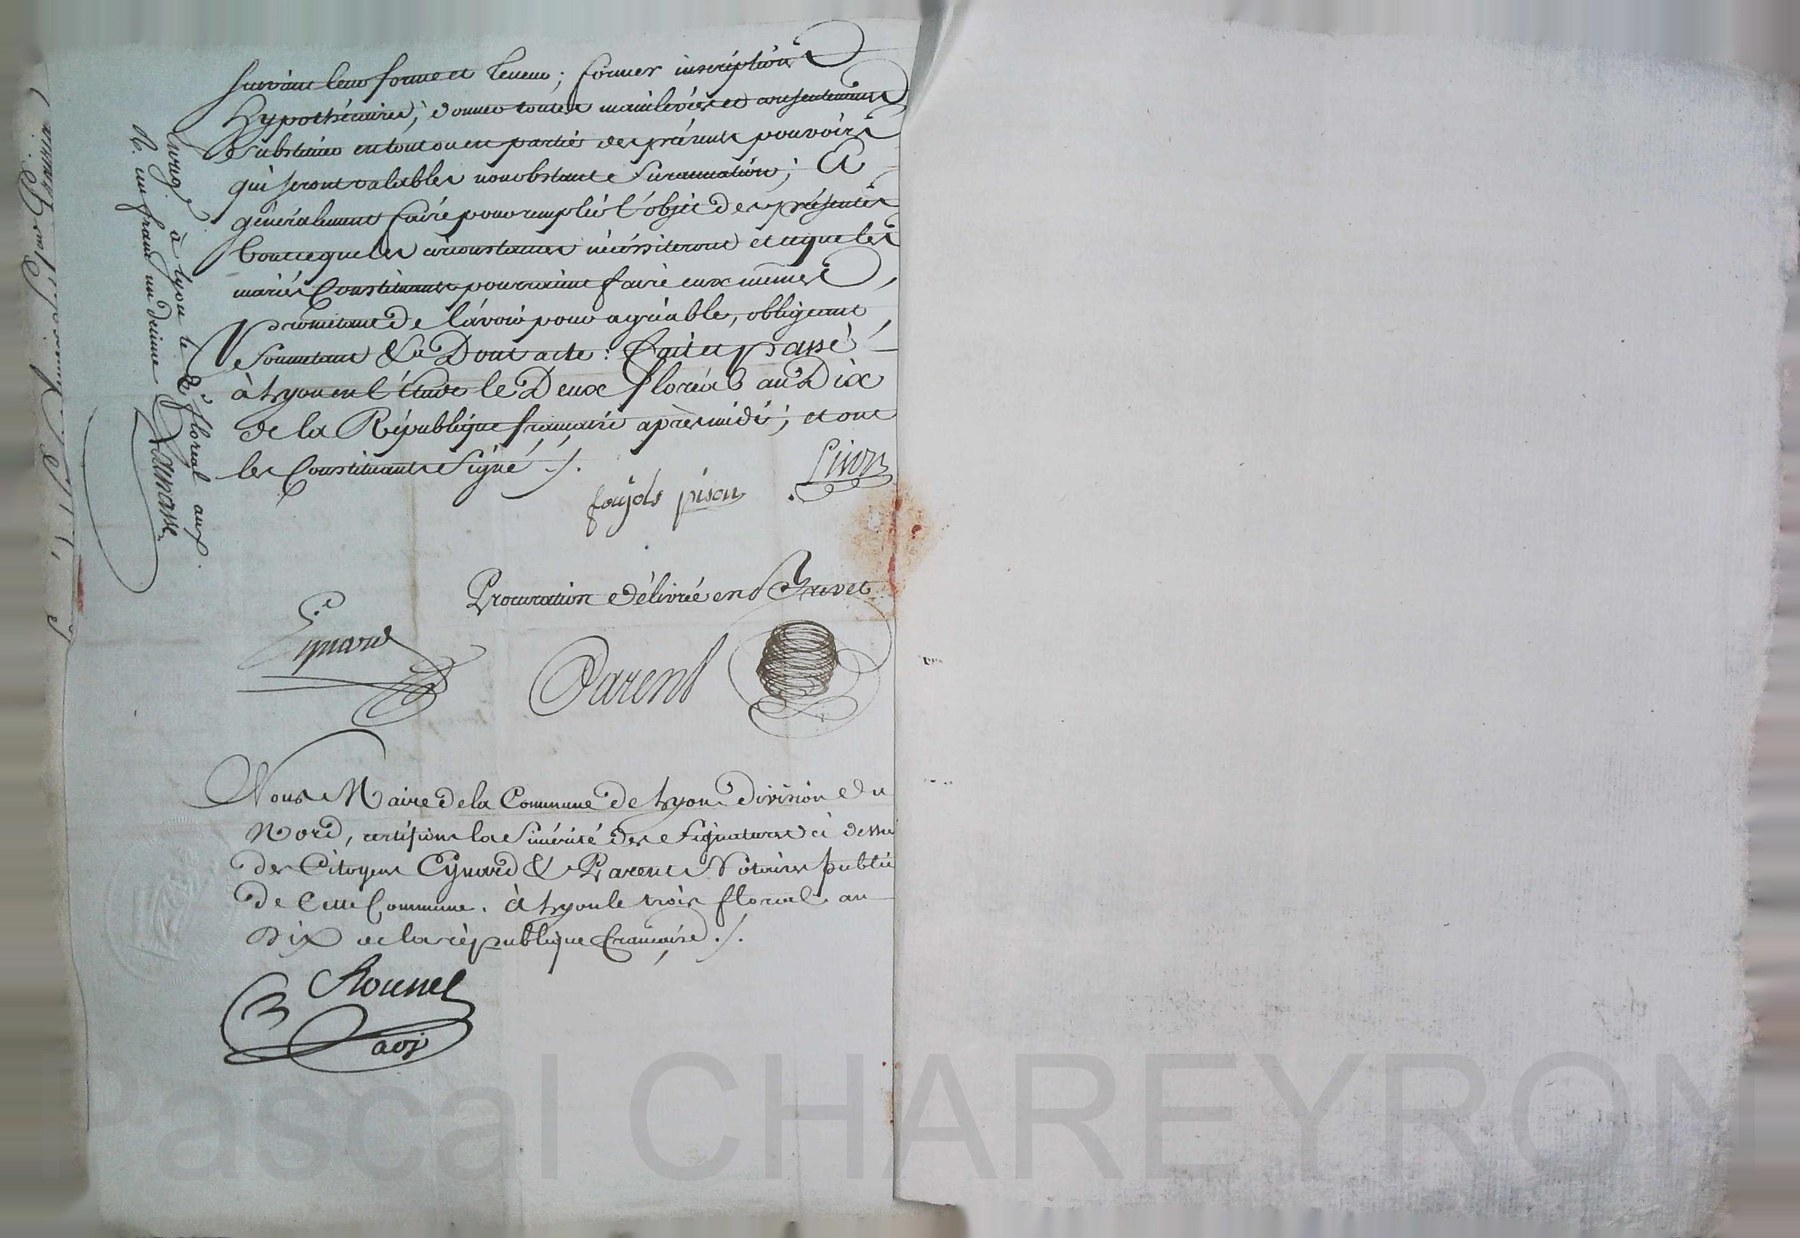 suivant leur forme et teneur; former inscriptions
hypothécaires, donner toutes mainlevées et consentements
substituer en tout ou en partie des présents pouvoirs
qui seront valables nonobstant surannation; Et
généralement faire pour remplir l'objet des présentes
tout ce que les circonstances nécéssiteront et ce que les
mariés Constituants pourraient faire eux mêmes,
Promettant de l'avoir pour agréable, obligeant
Soumettant &a Dont acte: fait et passé
à Lyon en l'étude le Deux floréal an Dix
de la République française après midi; et ont
les Constituants Signé ./.
foujols pison
Procuration Délivrée en Brevet
Eynard
Parent
Nous Maire de la Commune de Lyon division du
Nord, certifions la Sincérité des Signatures ci dessus
des Citoyens Eynard & Parent Notaires publics
de Cette Commune. à Lyon le trois floréal an
Dix de la république française ./.
adj
à Lyon le 2e floreal an X.
R. un franc un decime
Pascal CHAREYRON